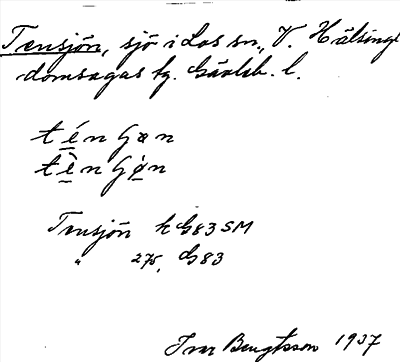 Tensjön, sjö i Los sn., V. Hälsingl
domsagas tg. Gävleb. l.
Tensjön k G83 SM
" 275, G83
Ivar Bengtsson 1937